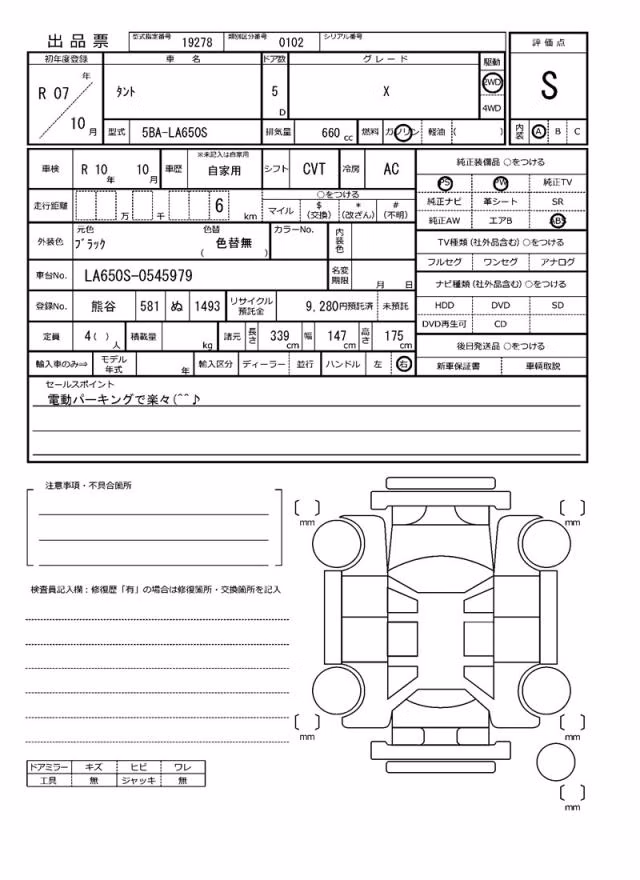 出品票 型式指定番号 19278 類別区分番号 0102 シリアル番号
評価点
S
内装 A B C
初年度登録 車名 ドア数 グレード 駆動
R 07 年 10 月 タント 5 D X 2WD 4WD
型式 5BA-LA650S 排気量 660 cc 燃料 ガソリン 軽油 ( )
車検 R 10 年 10 月 車歴 ※未記入は自家用 自家用 シフト CVT 冷房 AC
走行距離 万 千 6 km ○をつける
マイル $ (交換) * (改ざん) # (不明)
外装色 元色 ブラック 色替 ( 色替無 ) カラーNo. 内装色
車台No. LA650S-0545979 名変期限 月 日
登録No. 熊谷 581 ぬ 1493 リサイクル預託金 9,280円預託済 未預託
定員 4( ) 人 積載量 kg 諸元 長さ 339 cm 幅 147 cm 高さ 175 cm
輸入車のみ⇒ モデル年式 年 輸入区分 ディーラー 並行 ハンドル 左 右
純正装備品 ○をつける
PS PW 純正TV
純正ナビ 革シート SR
純正AW エアB ABS
TV種類(社外品含む) ○をつける
フルセグ ワンセグ アナログ
ナビ種類(社外品含む) ○をつける
HDD DVD SD
DVD再生可 CD
後日発送品 ○をつける
新車保証書 車輌取説
セールスポイント
電動パーキングで楽々(^^♪
注意事項・不具合箇所
検査員記入欄:修復歴「有」の場合は修復箇所・交換箇所を記入
ドアミラー キズ ヒビ ワレ
工具 無 ジャッキ 無
[ ] mm [ ] mm
[ ] mm [ ] mm
[ ] mm